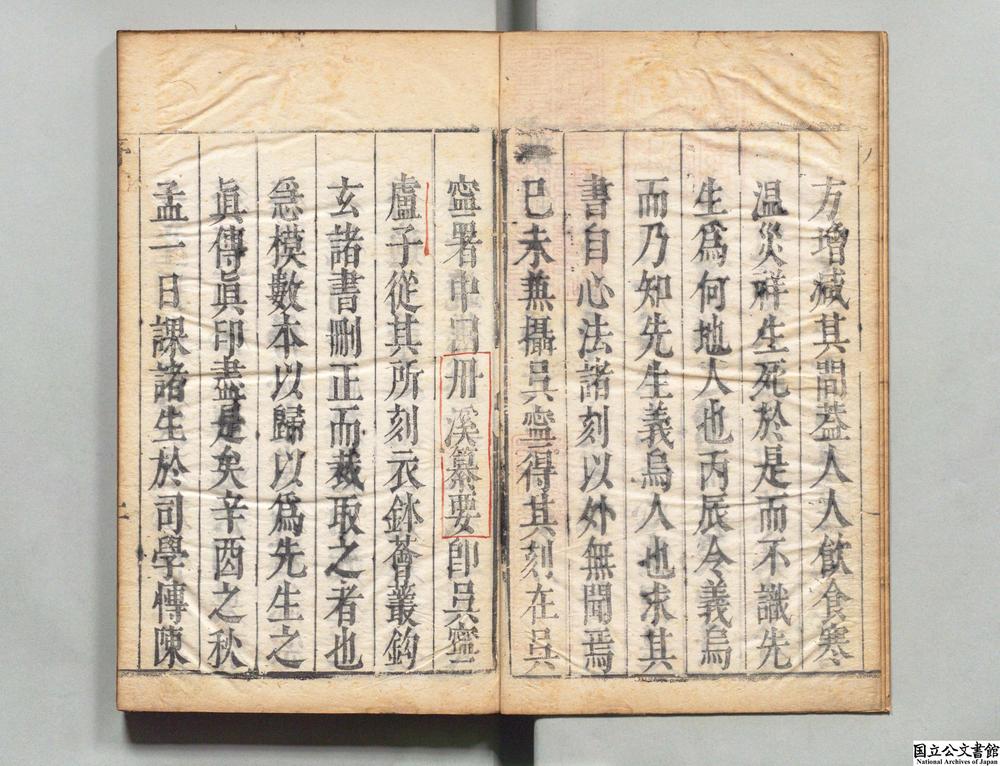 方增減其間葢人人飲食寒
温災祥生死於是而不識先
生爲何地人也丙辰令義烏
而乃知先生義烏人也求其
書自心法諸刻以外無聞焉
已未兼攝吳寧得其刻在吳
寧署中曰丹溪纂要卽吳寧
盧子從其所刻衣鉢薈叢鈎
玄諸書刪正而裁取之者也
急模數本以歸以爲先生之
眞傳眞印盡是矣辛酉之秋
孟一日課諸生於司學愽陳
国立公文書館
National Archives of Japan